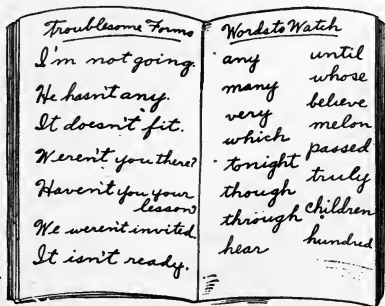 Troublesome Forms
I'm not going.
He hasn't any.
It doesn't fit.
Weren't you there?
Haven't you your
lesson
We weren't invited
It isn't ready.
Words to Watch
any
many
very
which
tonight
though
through
hear
until
whose
believe
melon
passed
truly
children
hundred